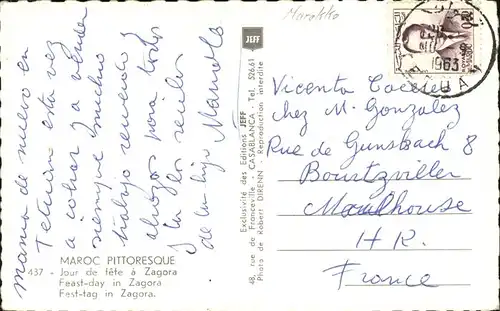 mama de nuevo en
Tetuán esta vez
a cobrar y a vender
siempre mucho
trabajo
abrazos para todos
y tu los recibes
de tu hijo Manolo
MAROC PITTORESQUE
437 - Jour de fête à Zagora
Feast-day in Zagora
Fest-tag in Zagora.
JEFF
Exclusivité des Editions JEFF
48, rue de Franceville - CASABLANCA - Tel. 526.61
Photo de Robert DIRENN Reproduction interdite
Marokko
1963
0,20
Vicenta
chez M. Gonzalez
Rue de Gunsbach 8
Bourtzviller
Moulhouse
H R.
France